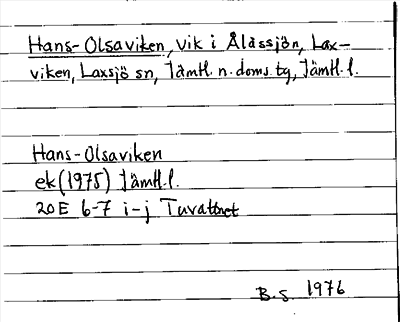 Hans-Olsaviken, vik i Ålåssjön, Lax-
viken, Laxsjö sn, Jämtl. n. doms. tg, Jämtl. l.
Hans-Olsaviken
ek (1975) Jämtl. l.
20E 6-7 i-j Tuvattnet
B.S. 1976